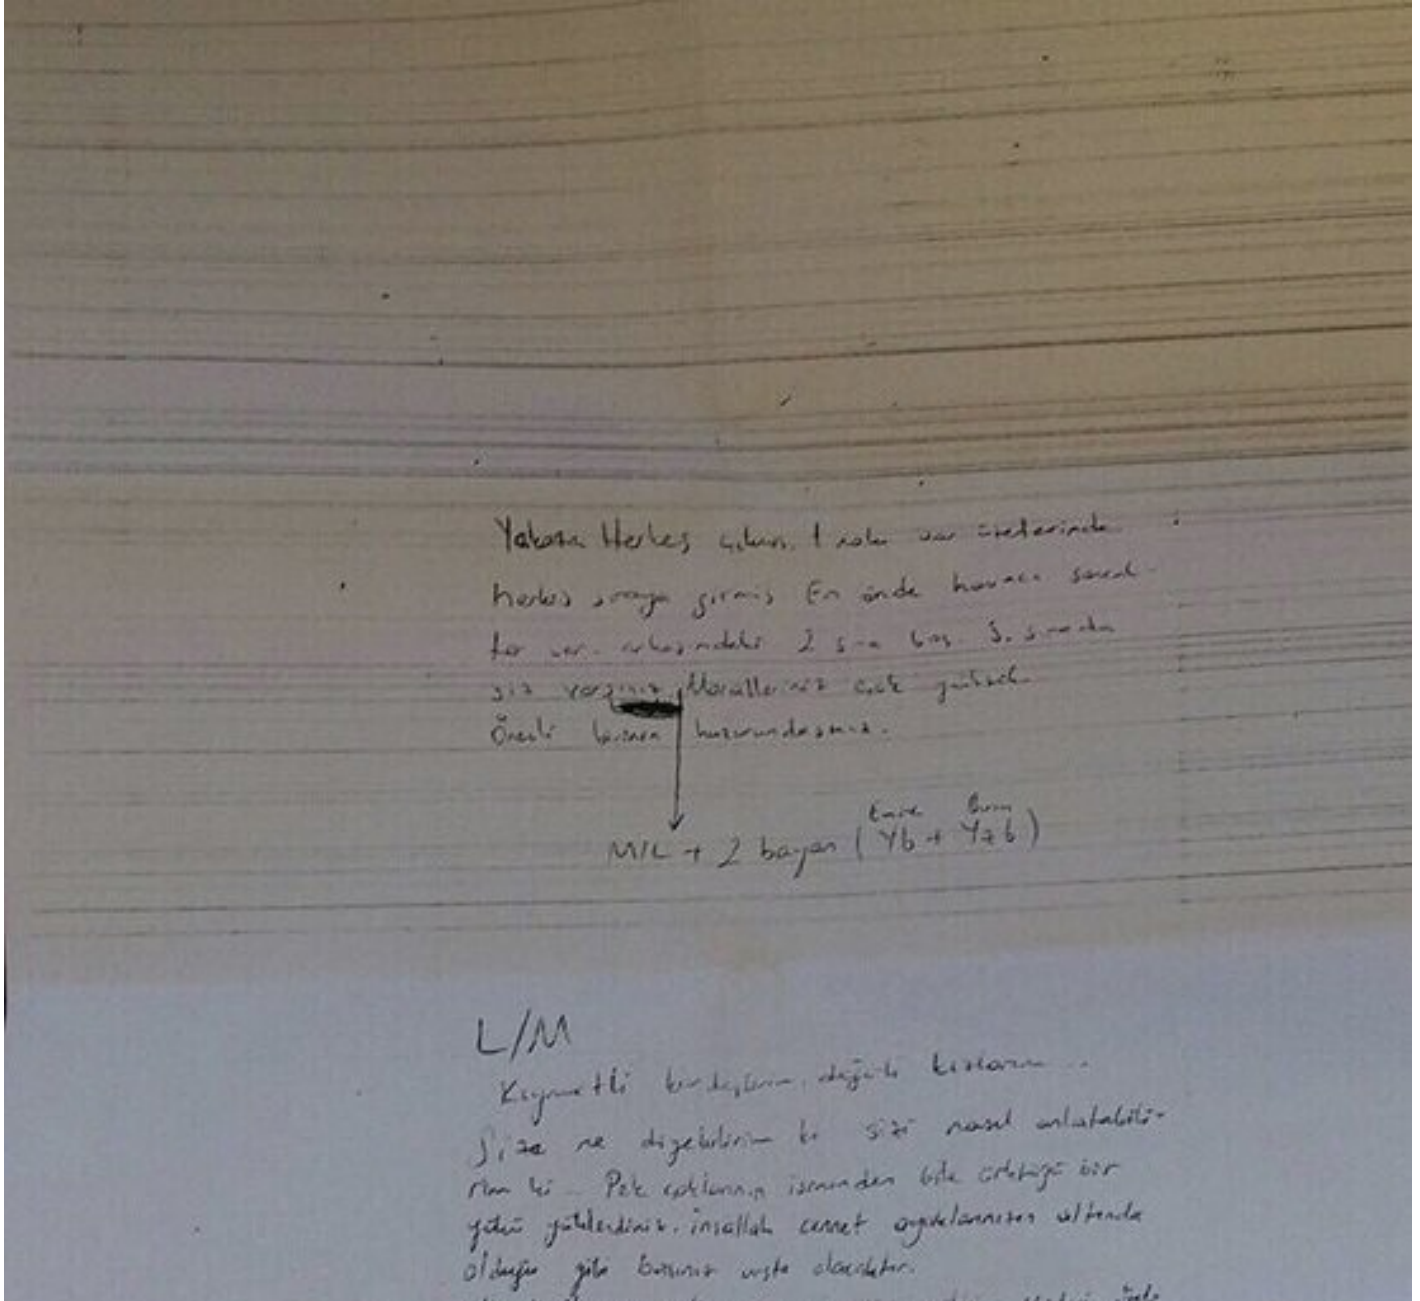 Yakaza Herkes çıkmış. 1 nolu var üzerlerinde
herkes sıraya girmiş En önde havacı
ler var. arkasındaki 2 sıra boş. 3. sırada
siz varsınız Moralleriniz çok yüksek
Önemli birinin huzurundasınız.
Emre Burcu
MIL + 2 bayan (Yb + Yzb)
L/M
Kıymetli kardeşlerim, değerli kızlarım...
Size ne diyebilirim ki sizi nasıl anlatabili-
rim ki... Pek çoklarının isminden bile ürktüğü bir
yükü yüklendiniz. inşallah cennet ayaklarınızın altında
olduğu gibi başınız üste olacaktır.